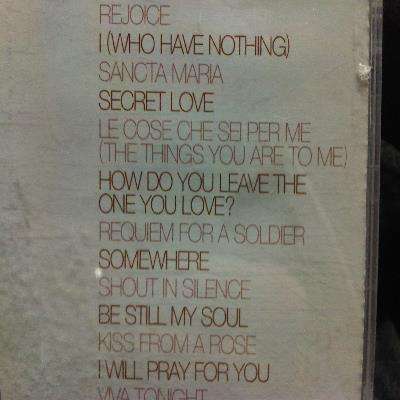 REJOICE
I (WHO HAVE NOTHING)
SANCTA MARIA
SECRET LOVE
LE COSE CHE SEI PER ME
(THE THINGS YOU ARE TO ME)
HOW DO YOU LEAVE THE
ONE YOU LOVE?
REQUIEM FOR A SOLDIER
SOMEWHERE
SHOUT IN SILENCE
BE STILL MY SOUL
KISS FROM A ROSE
I WILL PRAY FOR YOU
VIVA TONIGHT